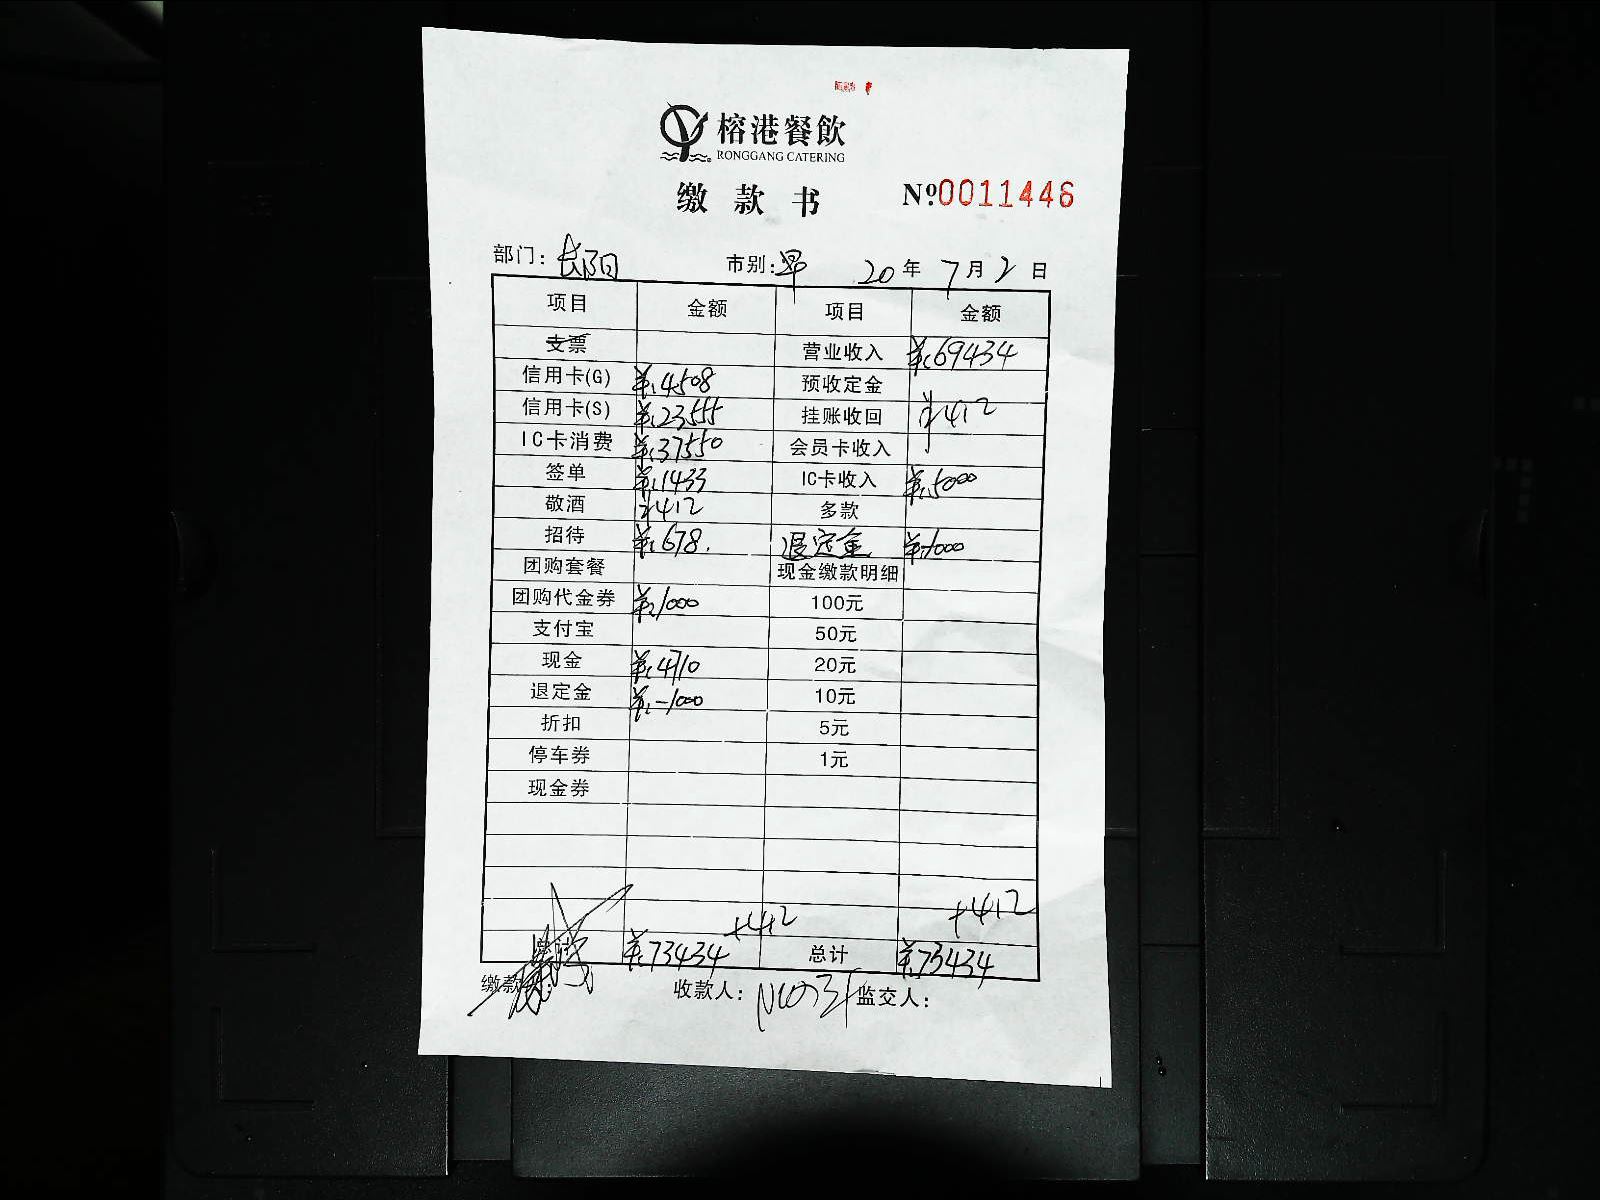 榕港餐飲
RONGGANG CATERING
缴款书 №0011446
部门：长阳 市别：早 20年7月2日
项目 金额 项目 金额
支票 营业收入 ¥:69434
信用卡(G) ¥:4508 预收定金
信用卡(S) ¥:23555 挂账收回 ¥412
IC卡消费 ¥:37550 会员卡收入
签单 ¥:1433 IC卡收入 ¥:5000
敬酒 ¥412 多款
招待 ¥:678. 退定金 ¥-1000
团购套餐 现金缴款明细
团购代金券 ¥:1000 100元
支付宝 50元
现金 ¥:4710 20元
退定金 ¥:-1000 10元
折扣 5元
停车券 1元
现金券
+412 +412
¥:73434 总计 ¥:73434
缴款 收款人： 监交人：